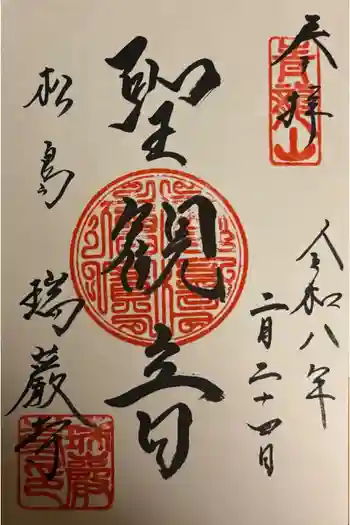 奉拝
青龍山
令和八年
二月二十四日
聖観音
松島
瑞巌寺